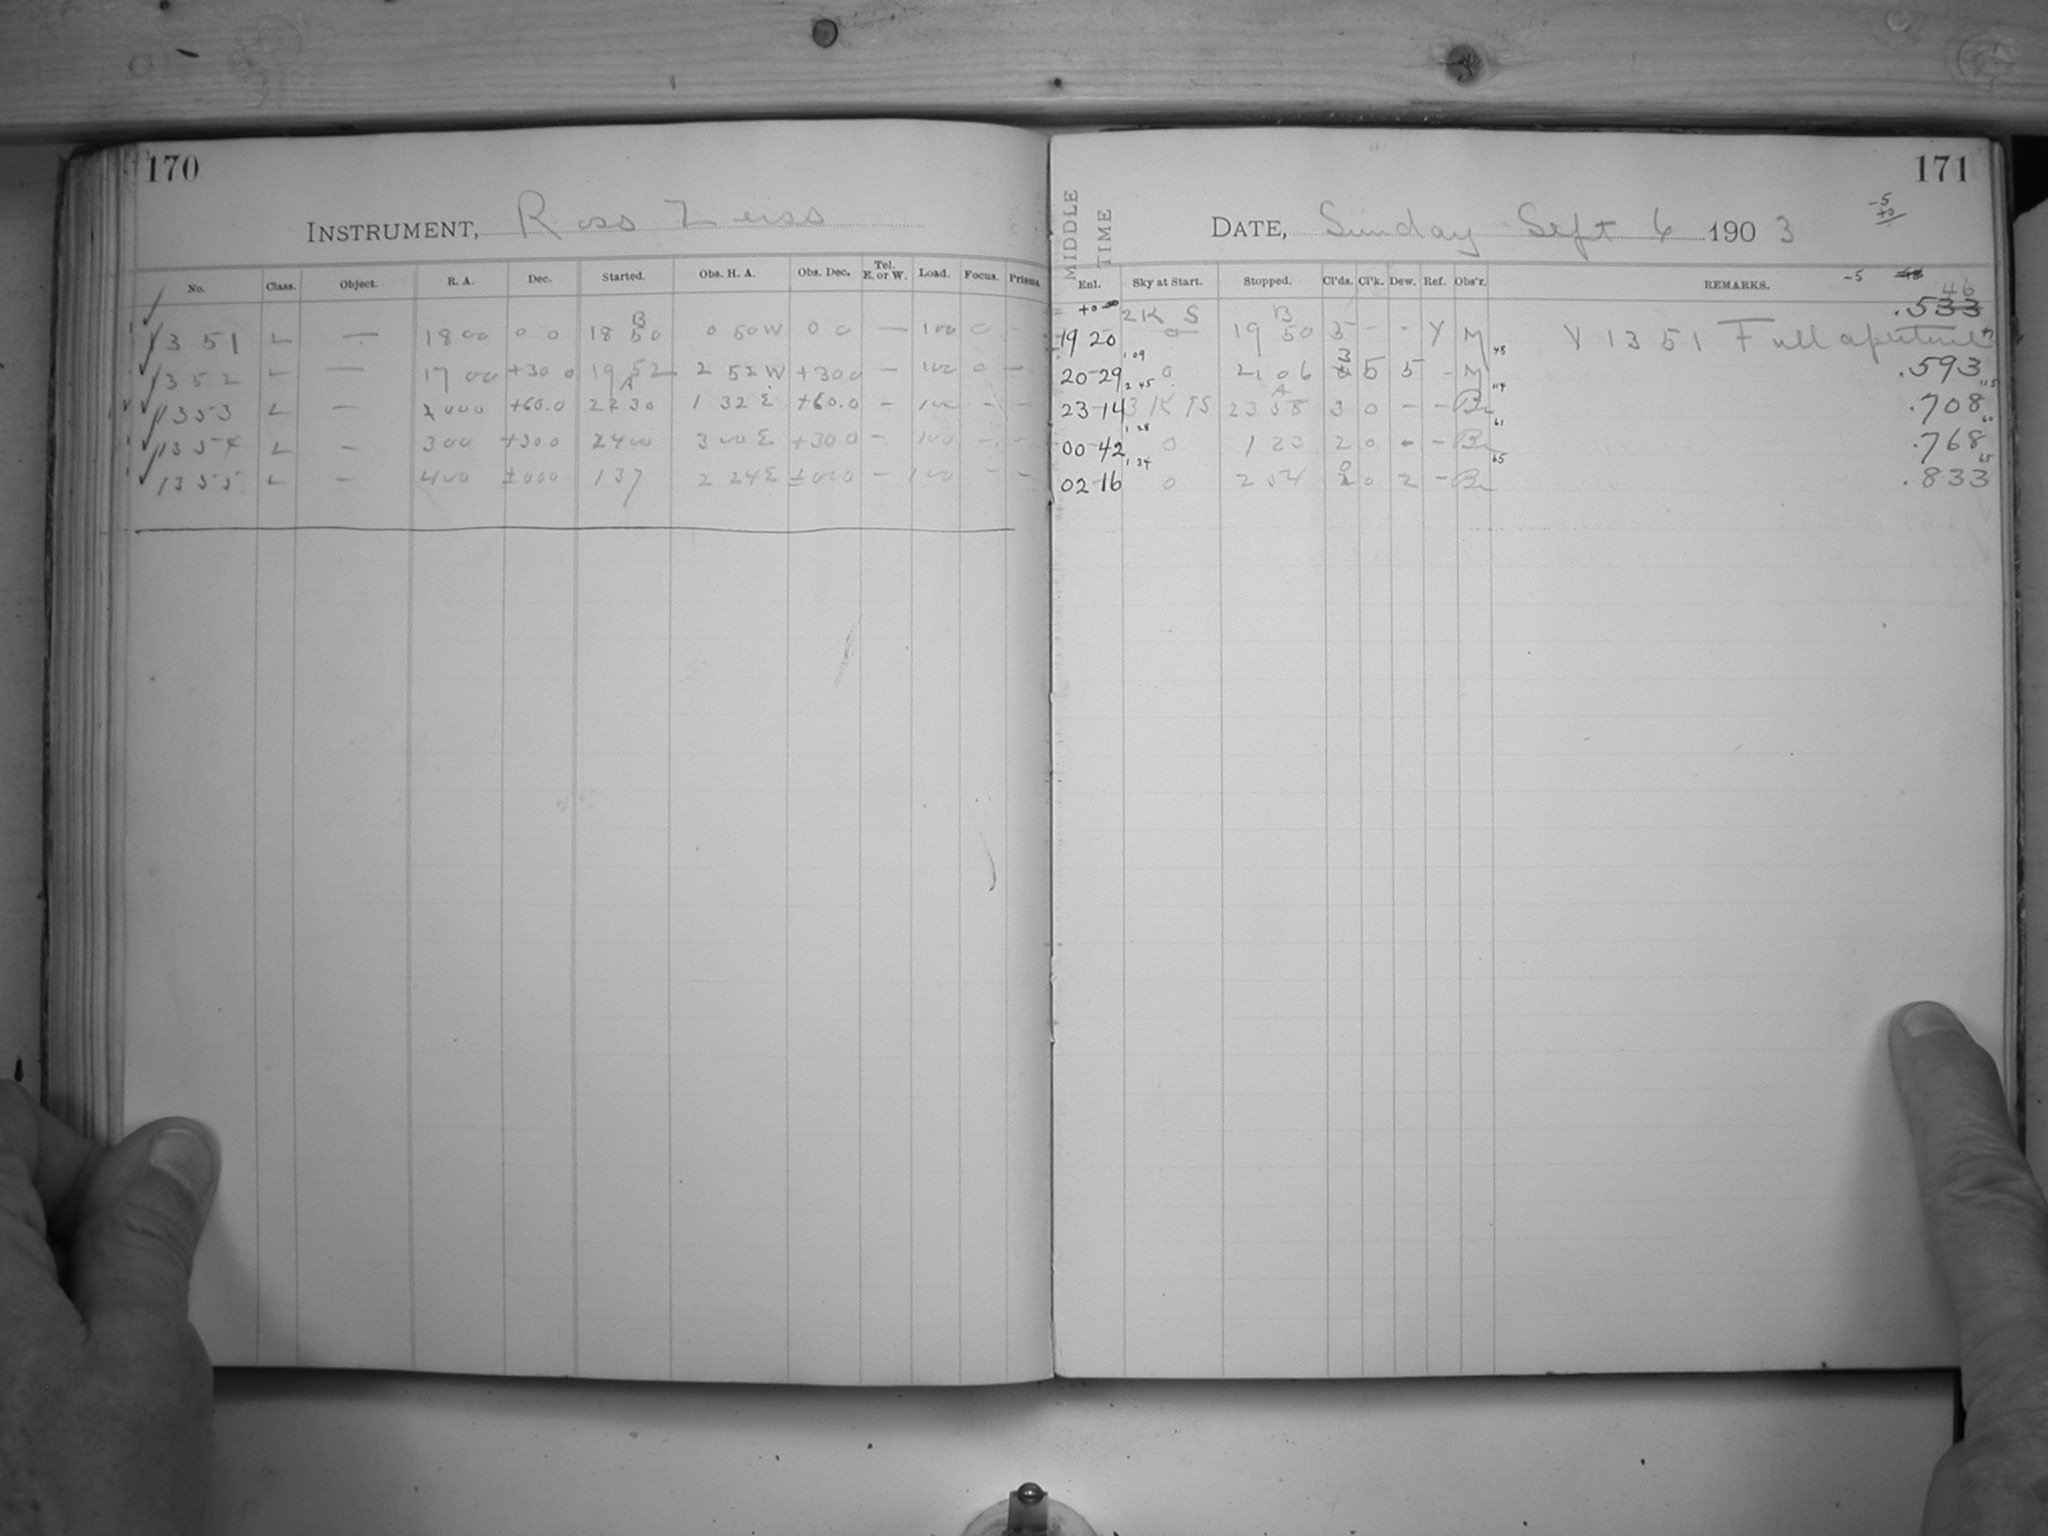 170
INSTRUMENT, Ross Zeiss
No. Class. Object. R. A. Dec. Started. Obs. H. A. Obs. Dec. Tel. E. or W. Load. Focus. Prisms
B
1351 L — 18 00 0 0 18 50 0 50 W 0 0 — 100 0 -
1352 L — 17 00 +30 0 19 52 2 52 W +300 — 100 0 -
A
1353 L — 2000 +60.0 22 30 1 32 E +60.0 - 100 - -
1354 L — 300 +30.0 2400 3 00 E +30.0 - 100 - -
1355 L — 400 ±000 137 2 24 E ±000 - 100 - -
171
MIDDLE TIME
DATE, Sunday Sept 6 1903
-5
+0
Enl. Sky at Start. Stopped. Cl'ds. Cl'k. Dew. Ref. Obs'r. REMARKS. -5 46
+0 2K S B .533
19 20 0 19 50 5 - - Y M Y 1351 Full aperture
1 09 45
20-29 0 21 06 3 5 5 - M .593
2 45 A 114 115
23-14 3 K TS 23 58 3 0 - - Br .708
1 28 61 60
00-42 0 1 23 2 0 - - Br .768
1 34 0 65 65
02-16 0 2 54 2 0 2 - Br .833